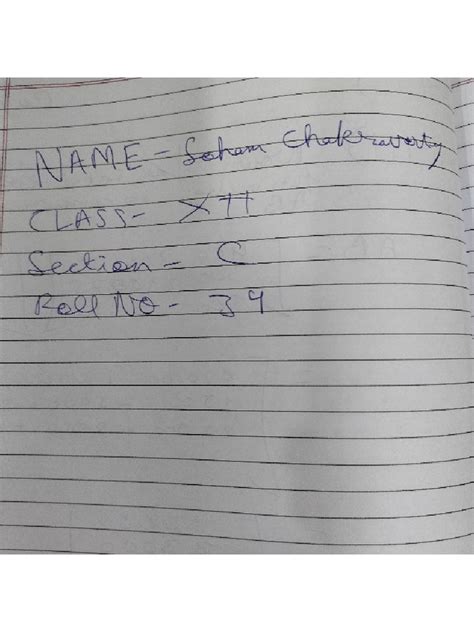 NAME - Soham Chakravarty
CLASS - XII
Section - C
Roll NO - 39